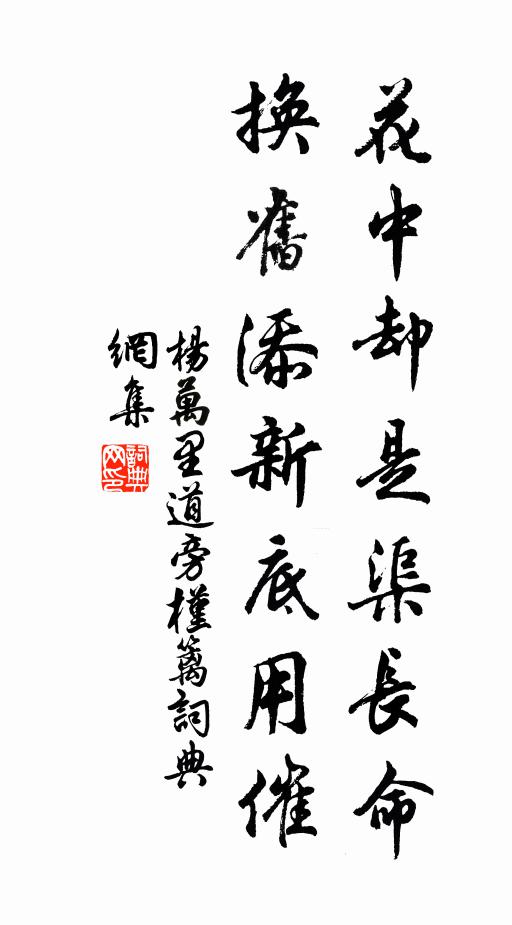 花中却是渠長命
換舊添新底用催
楊萬里道旁槿籬詞典
網集
詞典
网印